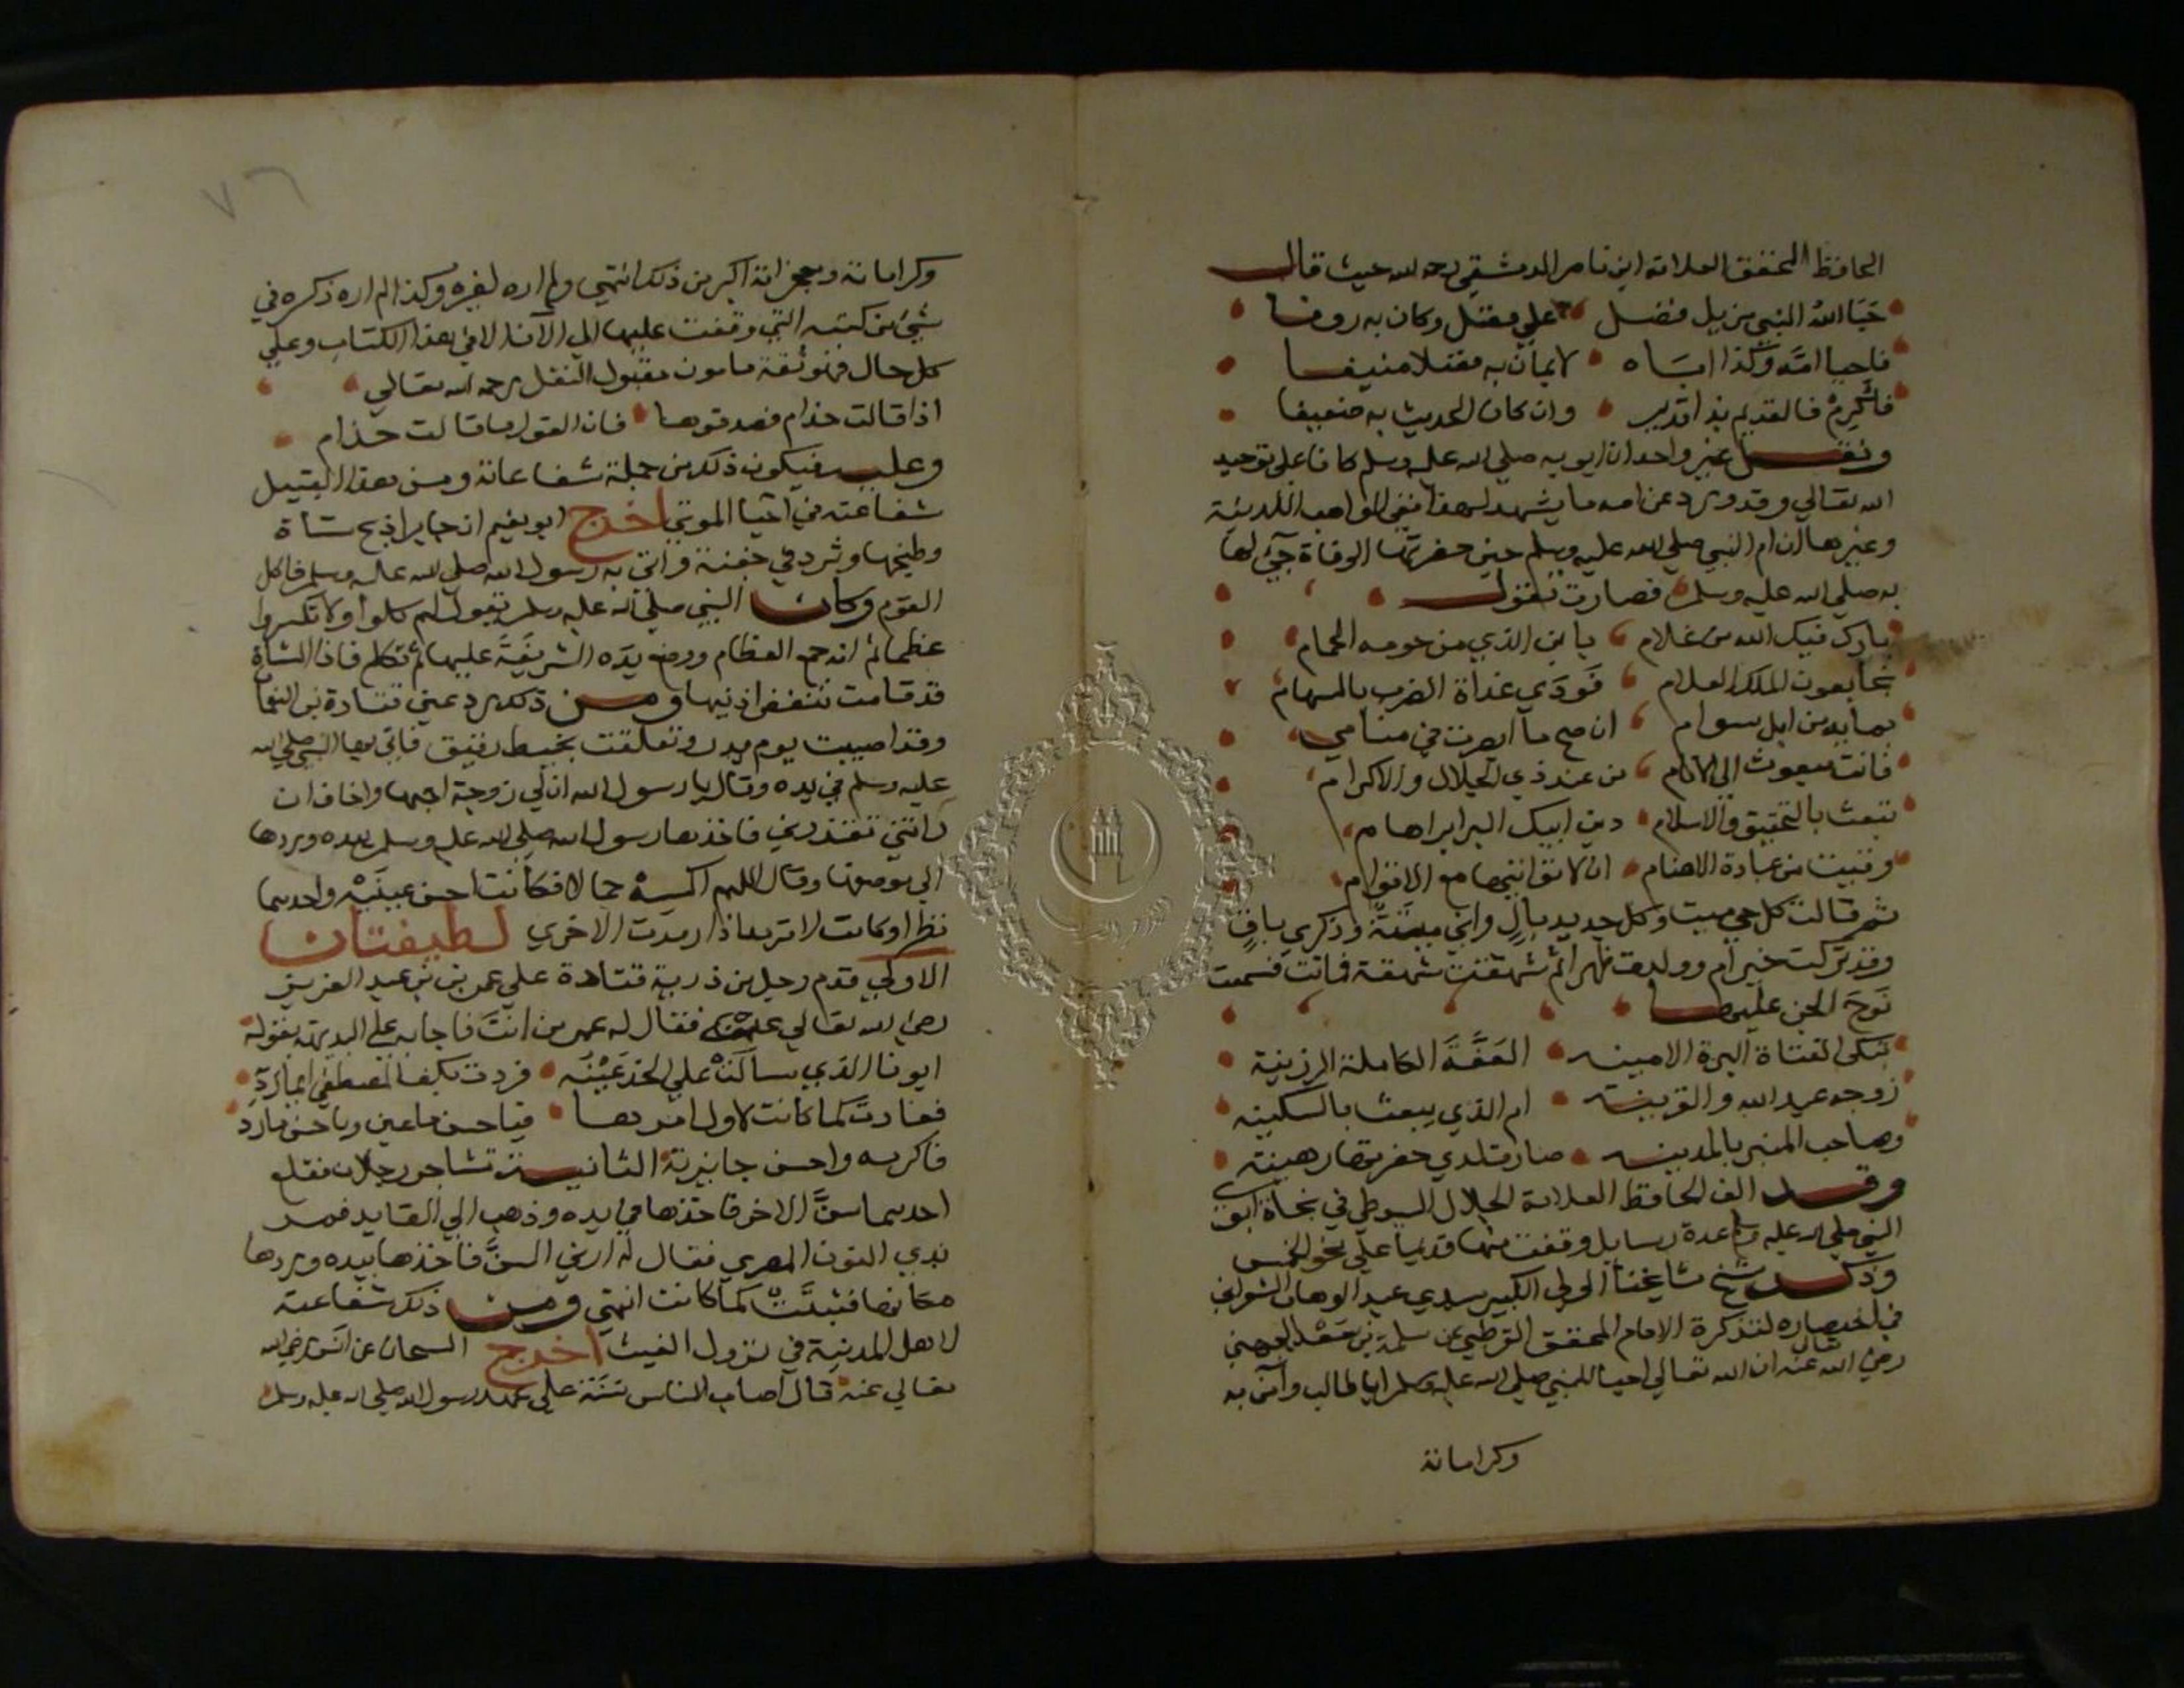 الحافظ المحقق العلامة ابن ناصر الدمشقي رحمه الله حيث قال
حبا الله النبي مزيد فضل على فضل وكان به روفا
فاحيا امه وكذا اباه لايمان به فضلا منيفا
فاكرم فالقديم بذا قدير وان كان الحديث به ضعيفا
ونقل غير واحد ان ابويه صلى الله عليه وسلم كانا على توحيد
الله تعالي وقد ورد عن امه ما يشهد لهذا ففي المواهب اللدنية
وغيرها ان ام النبي صلى الله عليه وسلم حين حضرتها الوفاة جيء لها
به صلى الله عليه وسلم فصارت تقول
بارك فيك الله من غلام يا ابن الذي من حومه الحمام
نجا بعون الملك العلام فودي غداة الضرب بالسهام
بماية من ابل سوام ان صح ما ابصرت في منامي
فانت مبعوث الى الانام من عند ذي الجلال والاكرام
تبعث بالتحقيق والاسلام دين ابيك البر ابراهام
من عبادة الاصنام ان لا تواليها مع الاقوام
ثم قالت كل حي ميت وكل جديد بال واني ميتة وذكري باق
وقد تركت خيرا وولدت طهرا ثم شهقت شهقة فماتت فسمعت
نوح الجن عليها
تبكى الفتاة البرة الامينه العفة الكاملة الرزينة
زوجه عبد الله والقرينه ام الذي يبعث بالسكينه
وصاحب المنبر بالمدينه صار لدي حفرتها رهينه
وقد الف الحافظ العلامة الجلال السيوطي في نجاة ابوي
النبي صلى الله عليه وسلم عدة رسايل وقفت منها قديما على نحو الخمس
وذكر شيخ مشايخنا الولي الكبير سيدي عبد الوهاب الشعراني
في اختصاره لتذكرة الامام المحقق القرطبي عن سلمة بن الجهني
رضي الله تعالى عنه ان الله تعالي احيا للنبي صلى الله عليه وسلم ابا طالب وآمن به
وكراماته
٧٦
وكراماته ومعجزاته اكبر من ذلك انتهي ولم اره لغيره وكذا لم اره ذكره في
شيء من كتبه التي وقفت عليها الي الآن الا في هذا الكتاب وعلي
كل حال فهو ثقة مامون مقبول النقل رحمه الله تعالي
اذا قالت حذام فصدقوها فان القول ما قالت حذام
وعليه فيكون ذلك من جملة شفاعاته ومن هذا القبيل
شفاعته في احيا الموتي اخرج ابو نعيم ان جابرا ذبح شاة
وطبخها وثرد في جفنة واتي به رسول الله صلى الله عليه وسلم فاكل
القوم وكان النبي صلى الله عليه وسلم يقول لهم كلوا ولا تكسروا
عظما ثم انه جمع العظام ووضع يده الشريفة عليها ثم تكلم فاذا الشاة
قد قامت تنفض اذنيها ومن ذلك رد عين قتادة بن النعمان
وقد اصيبت يوم بدر وتعلقت بخيط رقيق فاتي بها النبي صلى الله
عليه وسلم في يده وقال يا رسول الله ان لي زوجة احبها واخاف ان
راتني تقذرني فاخذها رسول الله صلى الله عليه وسلم بيده وردها
الى موضعها وقال اللهم اكسه جمالا فكانت احسن عينيه واحدهما
نظرا وكانت لا ترمد اذا رمدت الاخري لطيفتان
الاولي قدم رجل من ذرية قتادة علي عمر بن عبد العزيز
رضي الله تعالي عنه فقال له عمر من انت فاجابه على البديهة بقوله
ابونا الذي سالت علي الخد عينه فردت بكف المصطفي ايما رد
فعادت كما كانت لاول امرها فيا حسن ما عين ويا حسن ما رد
فاكرمه واحسن جايزته الثانية تشاجر رجلان فقلع
احدهما سن الاخر فاخذها في يده وذهب الي القايد فمر
بذي النون المصري فقال له ارني السن فاخذها بيده وردها
مكانها فثبتت كما كانت انتهي ومن ذلك شفاعته
لاهل المدينة في نزول الغيث اخرج الشيخان عن انس رضي الله
تعالي عنه قال اصاب الناس سنة على عهد رسول الله صلى الله عليه وسلم